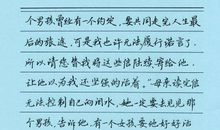 个男孩曾经有一个约定，要共同走完人生最
后的旅途，可是我也许无法履行诺言了。
所以请您替我将这些信陆续寄给他，
让他以为我还坚强的活着。"母亲读完信
无法控制自己的泪水，她一定要去见见那
个男孩，告诉他，有一个女孩要他好好活